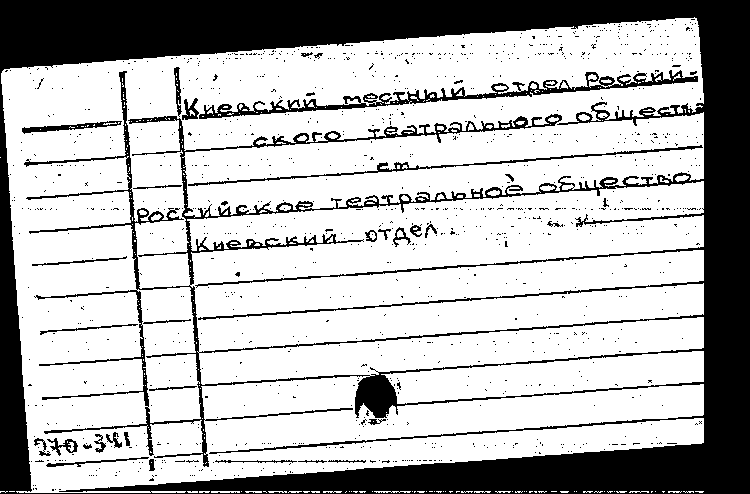 Киевский местный отдел Россий-
ского театрального общества
см.
Российское театральное общество.
Киевский отдел.
270-341